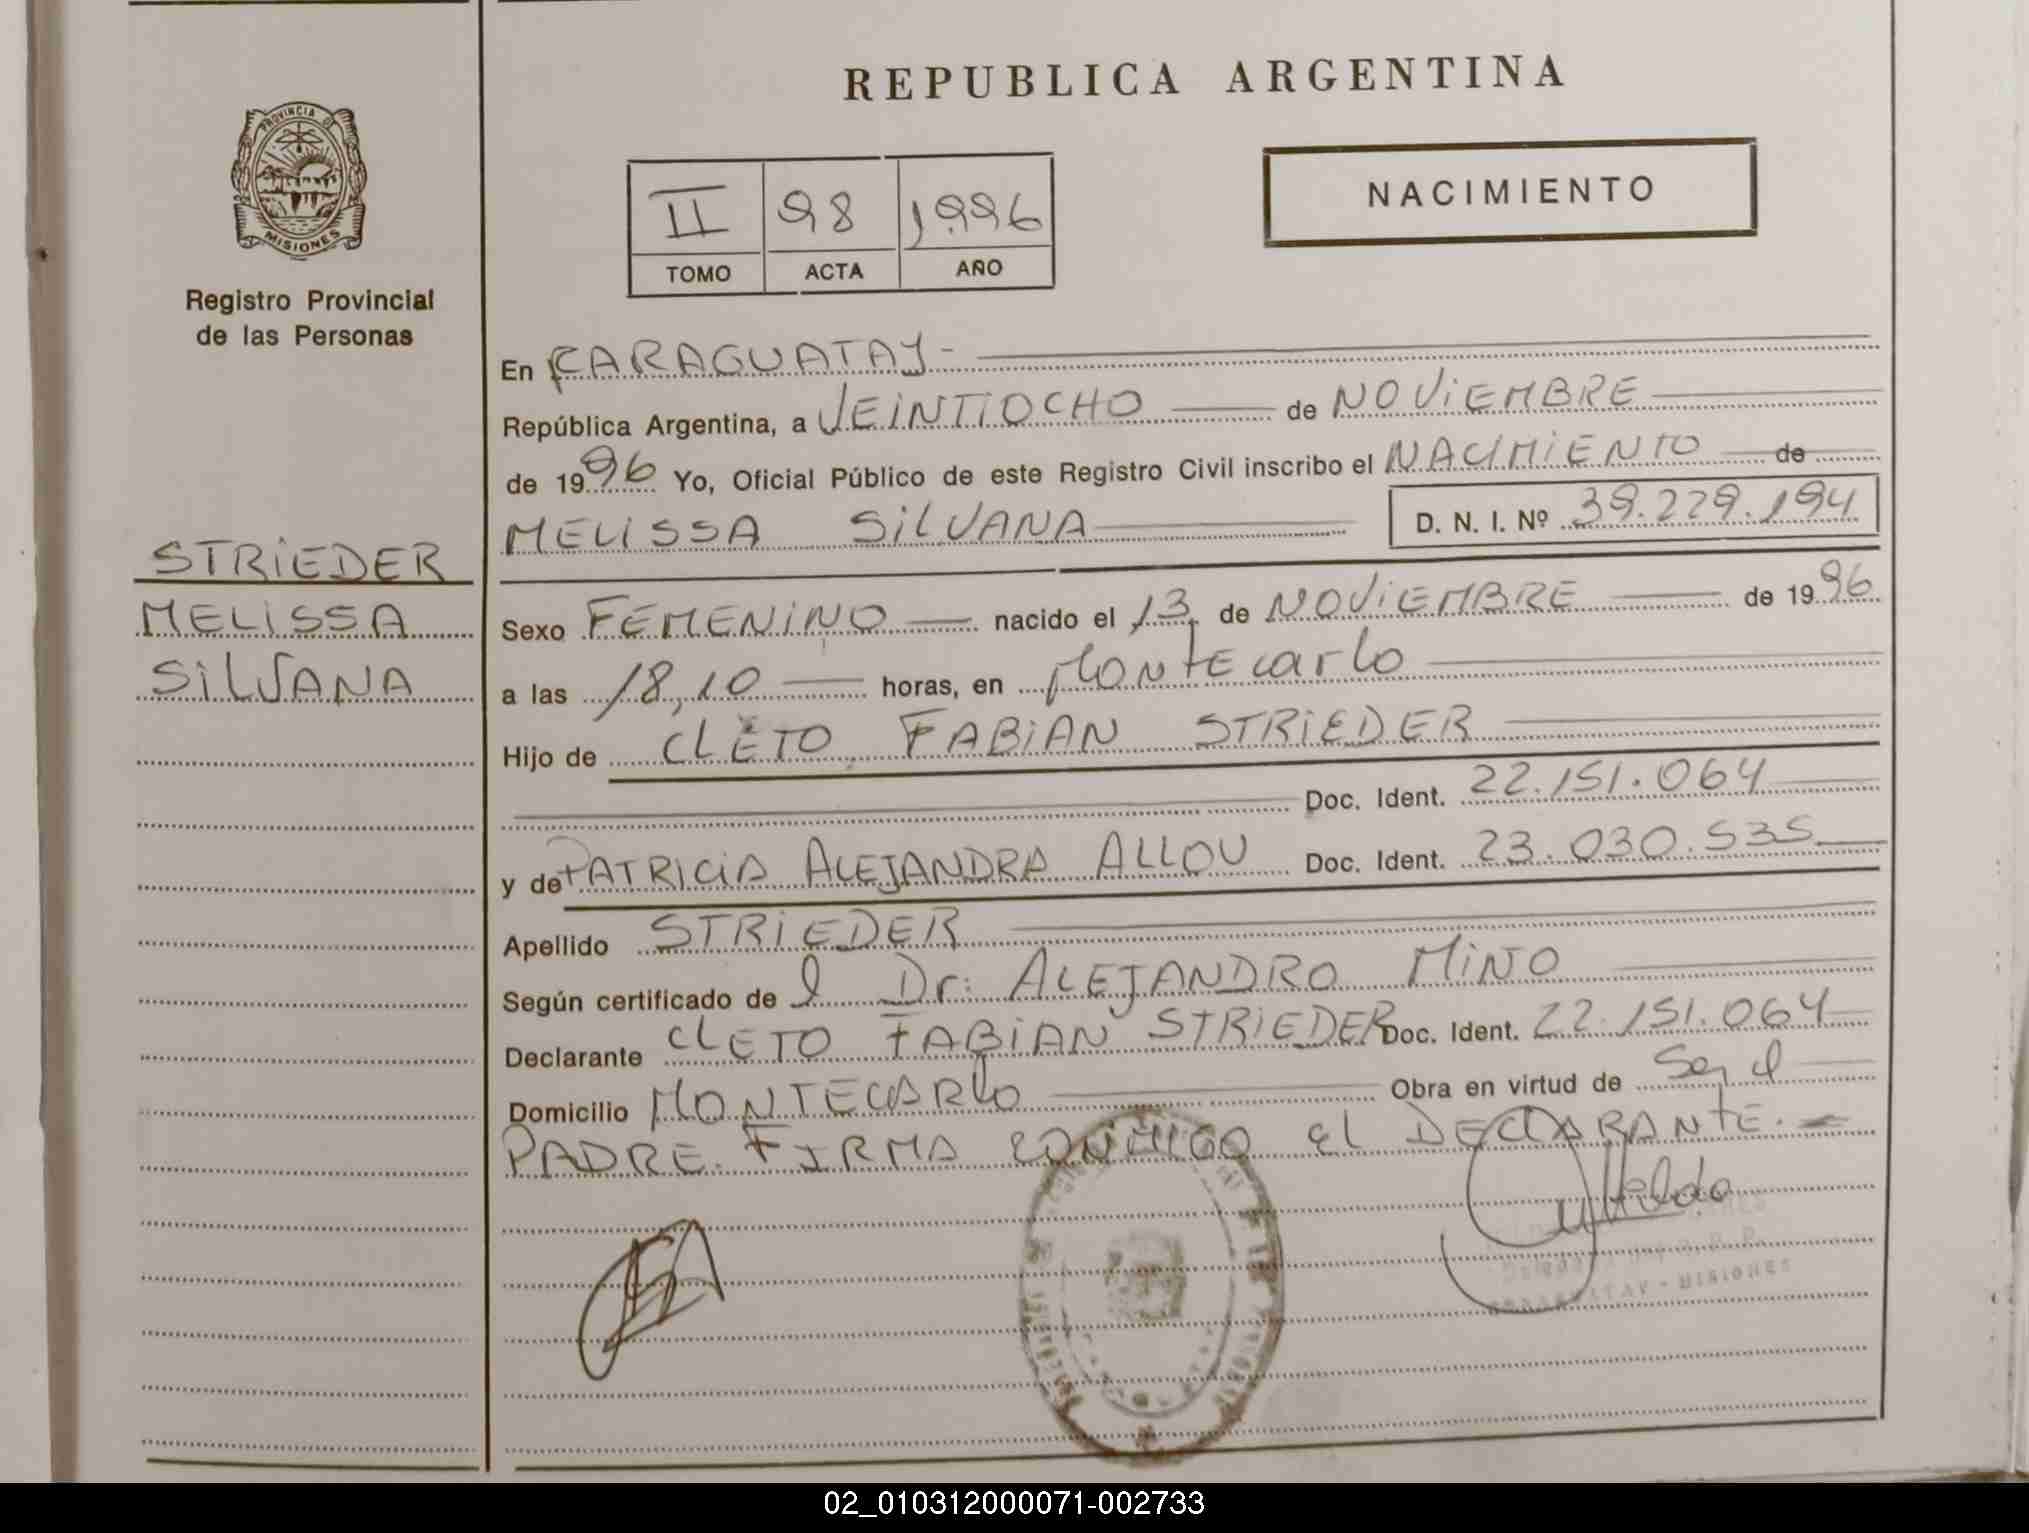 REPUBLICA ARGENTINA
PROVINCIA DE
MISIONES
Registro Provincial
de las Personas
II 98 1996
TOMO ACTA AÑO
NACIMIENTO
STRIEDER
MELISSA
SILVANA
En CARAGUATAY-
República Argentina, a VEINTIOCHO de NOVIEMBRE
de 1996 Yo, Oficial Público de este Registro Civil inscribo el NACIMIENTO de
MELISSA SILVANA D. N. I. Nº 39.229.194
Sexo FEMENINO nacido el 13 de NOVIEMBRE de 1996
a las 18,10 horas, en Montecarlo
Hijo de CLETO FABIAN STRIEDER
Doc. Ident. 22.151.064
y de PATRICIA ALEJANDRA ALLOU Doc. Ident. 23.030.535
Apellido STRIEDER
Según certificado del Dr: ALEJANDRO MINO
Declarante CLETO FABIAN STRIEDER Doc. Ident. 22.151.064
Domicilio MONTECARLO Obra en virtud de Ser el
PADRE. FIRMA CONMIGO el DECLARANTE.-
MISIONES
02_010312000071-002733